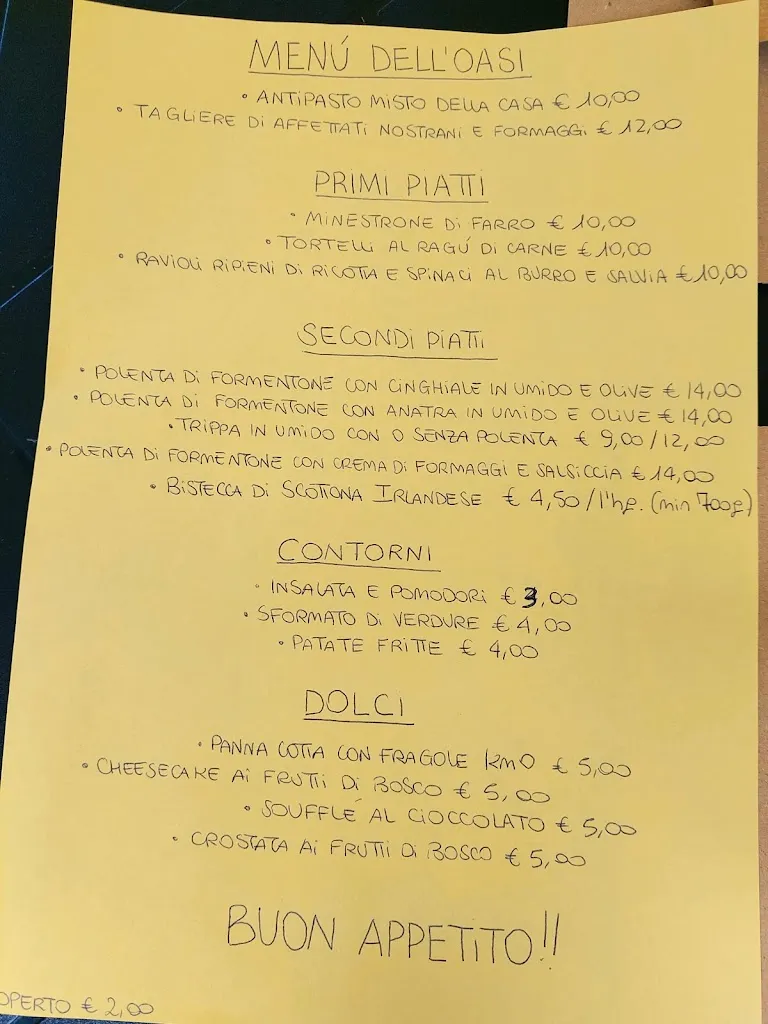 MENÚ DELL'OASI
• ANTIPASTO MISTO DELLA CASA € 10,00
• TAGLIERE DI AFFETTATI NOSTRANI E FORMAGGI € 12,00
PRIMI PIATTI
• MINESTRONE DI FARRO € 10,00
• TORTELLI AL RAGÚ DI CARNE € 10,00
• RAVIOLI RIPIENI DI RICOTTA E SPINACI AL BURRO E SALVIA € 10,00
SECONDI PIATTI
• POLENTA DI FORMENTONE CON CINGHIALE IN UMIDO E OLIVE € 14,00
• POLENTA DI FORMENTONE CON ANATRA IN UMIDO E OLIVE € 14,00
• TRIPPA IN UMIDO CON O SENZA POLENTA € 9,00/12,00
• POLENTA DI FORMENTONE CON CREMA DI FORMAGGI E SALSICCIA € 14,00
• BISTECCA DI SCOTTONA IRLANDESE € 4,50/l'hg. (min 700g)
CONTORNI
• INSALATA E POMODORI € 3,00
• SFORMATO DI VERDURE € 4,00
• PATATE FRITTE € 4,00
DOLCI
• PANNA COTTA CON FRAGOLE km0 € 5,00
• CHEESECAKE AI FRUTTI DI BOSCO € 5,00
• SOUFFLÉ AL CIOCCOLATO € 5,00
• CROSTATA AI FRUTTI DI BOSCO € 5,00
BUON APPETITO!!
OPERTO € 2,00